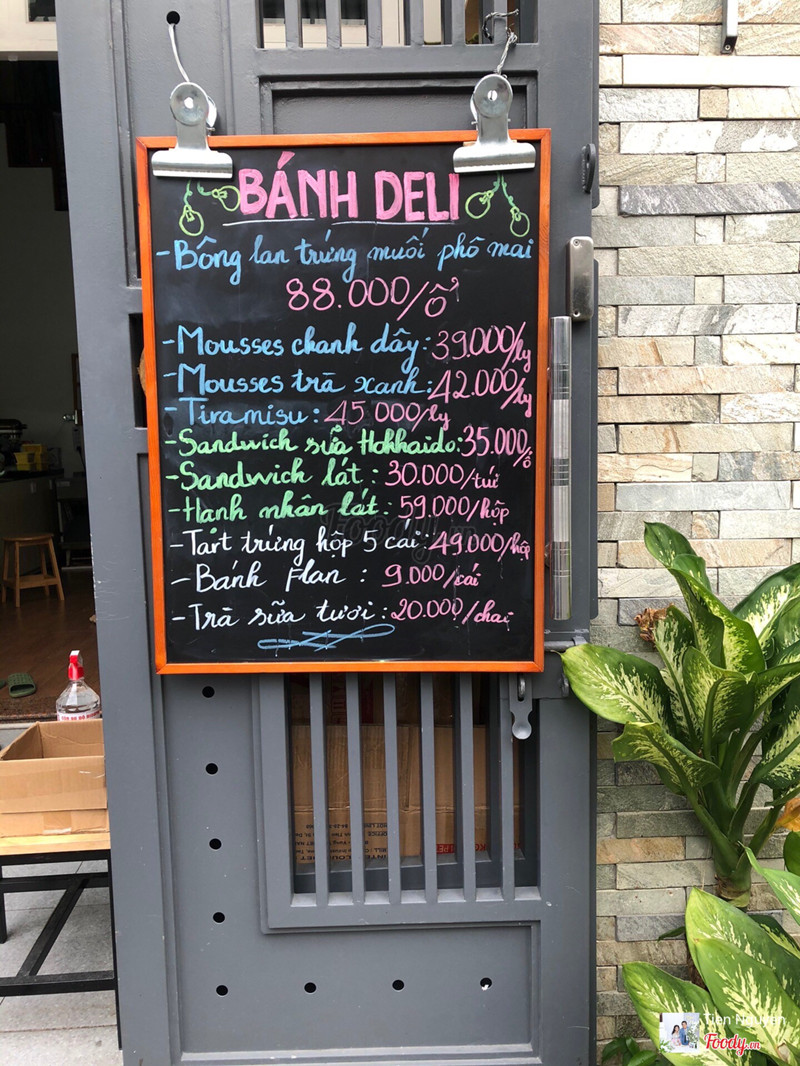 BÁNH DELI
- Bông lan trứng muối phô mai
88.000/ổ
- Mousses chanh dây: 39.000/ly
- Mousses trà xanh: 42.000/ly
- Tiramisu: 45.000/ly
- Sandwich sữa Hokkaido: 35.000/ổ
- Sandwich lát: 30.000/túi
- Hạnh nhân lát: 59.000/hộp
- Tart trứng hộp 5 cái: 49.000/hộp
- Bánh Flan: 9.000/cái
- Trà sữa tươi: 20.000/chai
Foody.vn
Tien Nguyen
Foody.vn